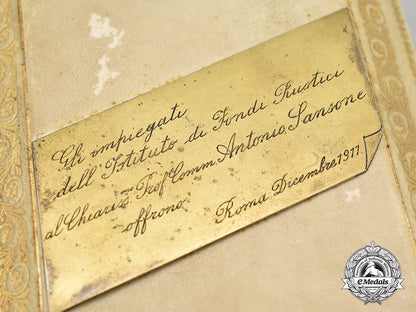 Gli impiegati
dell'Istituto di Fondi Rustici
al Chiar.mo Prof. Comm. Antonio Sansone
offrono
Roma Dicembre 1911.
eMedals